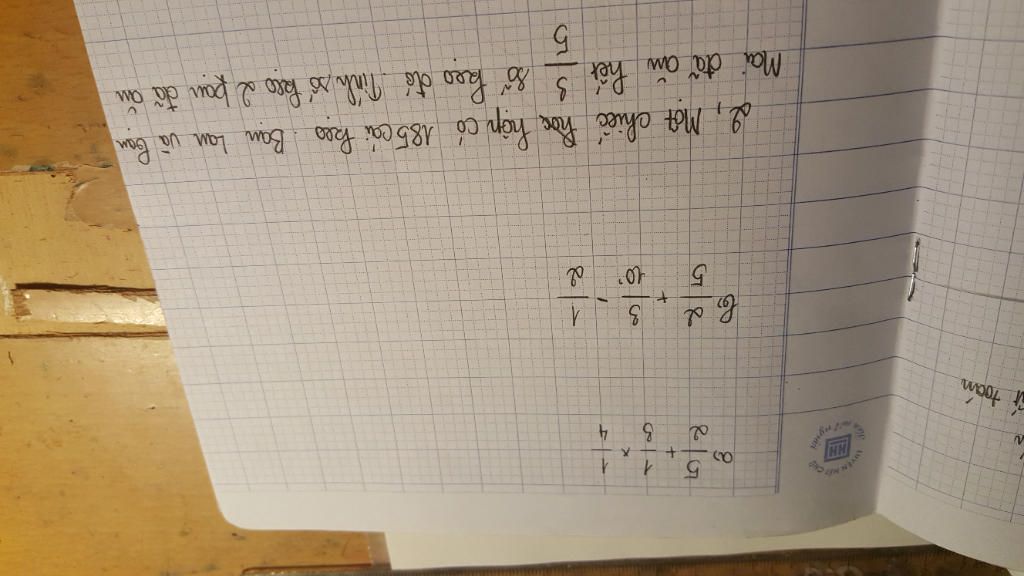 LUYỆN NÉT CHỮ
HH
Rèn nết người
toán
a) 5/2 + 1/3 × 1/4
b) 2/5 + 3/10 - 1/2
2, Một chiếc hộp có 185 cái kẹo. Bạn Lan và Bạn
Mai đã ăn hết 3/5 số kẹo đó. Tính số kẹo 2 bạn đã ăn